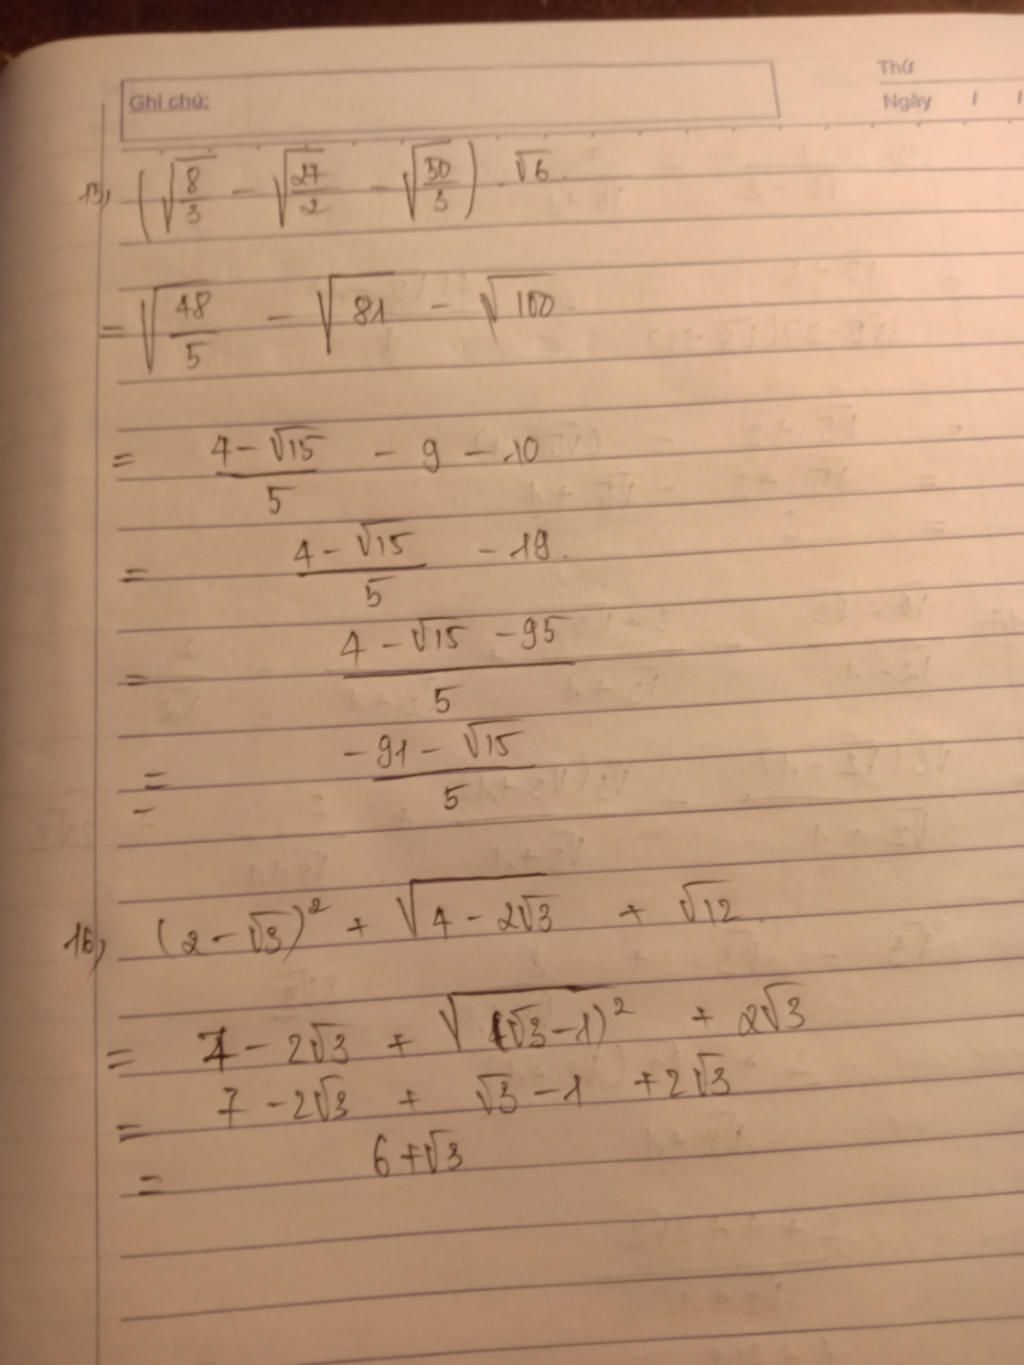 Thứ
Ghi chú:
Ngày / /
15, (√(8/3) - √(27/2) - √(50/3)) . √6.
= √(48/5) - √81 - √100
= (4 - √15)/5 - 9 - 10
= (4 - √15)/5 - 19.
= (4 - √15 - 95)/5
= (-91 - √15)/5
16, (2 - √3)² + √(4 - 2√3) + √12.
= 7 - 2√3 + √((√3 - 1)²) + 2√3
= 7 - 2√3 + √3 - 1 + 2√3
= 6 + √3